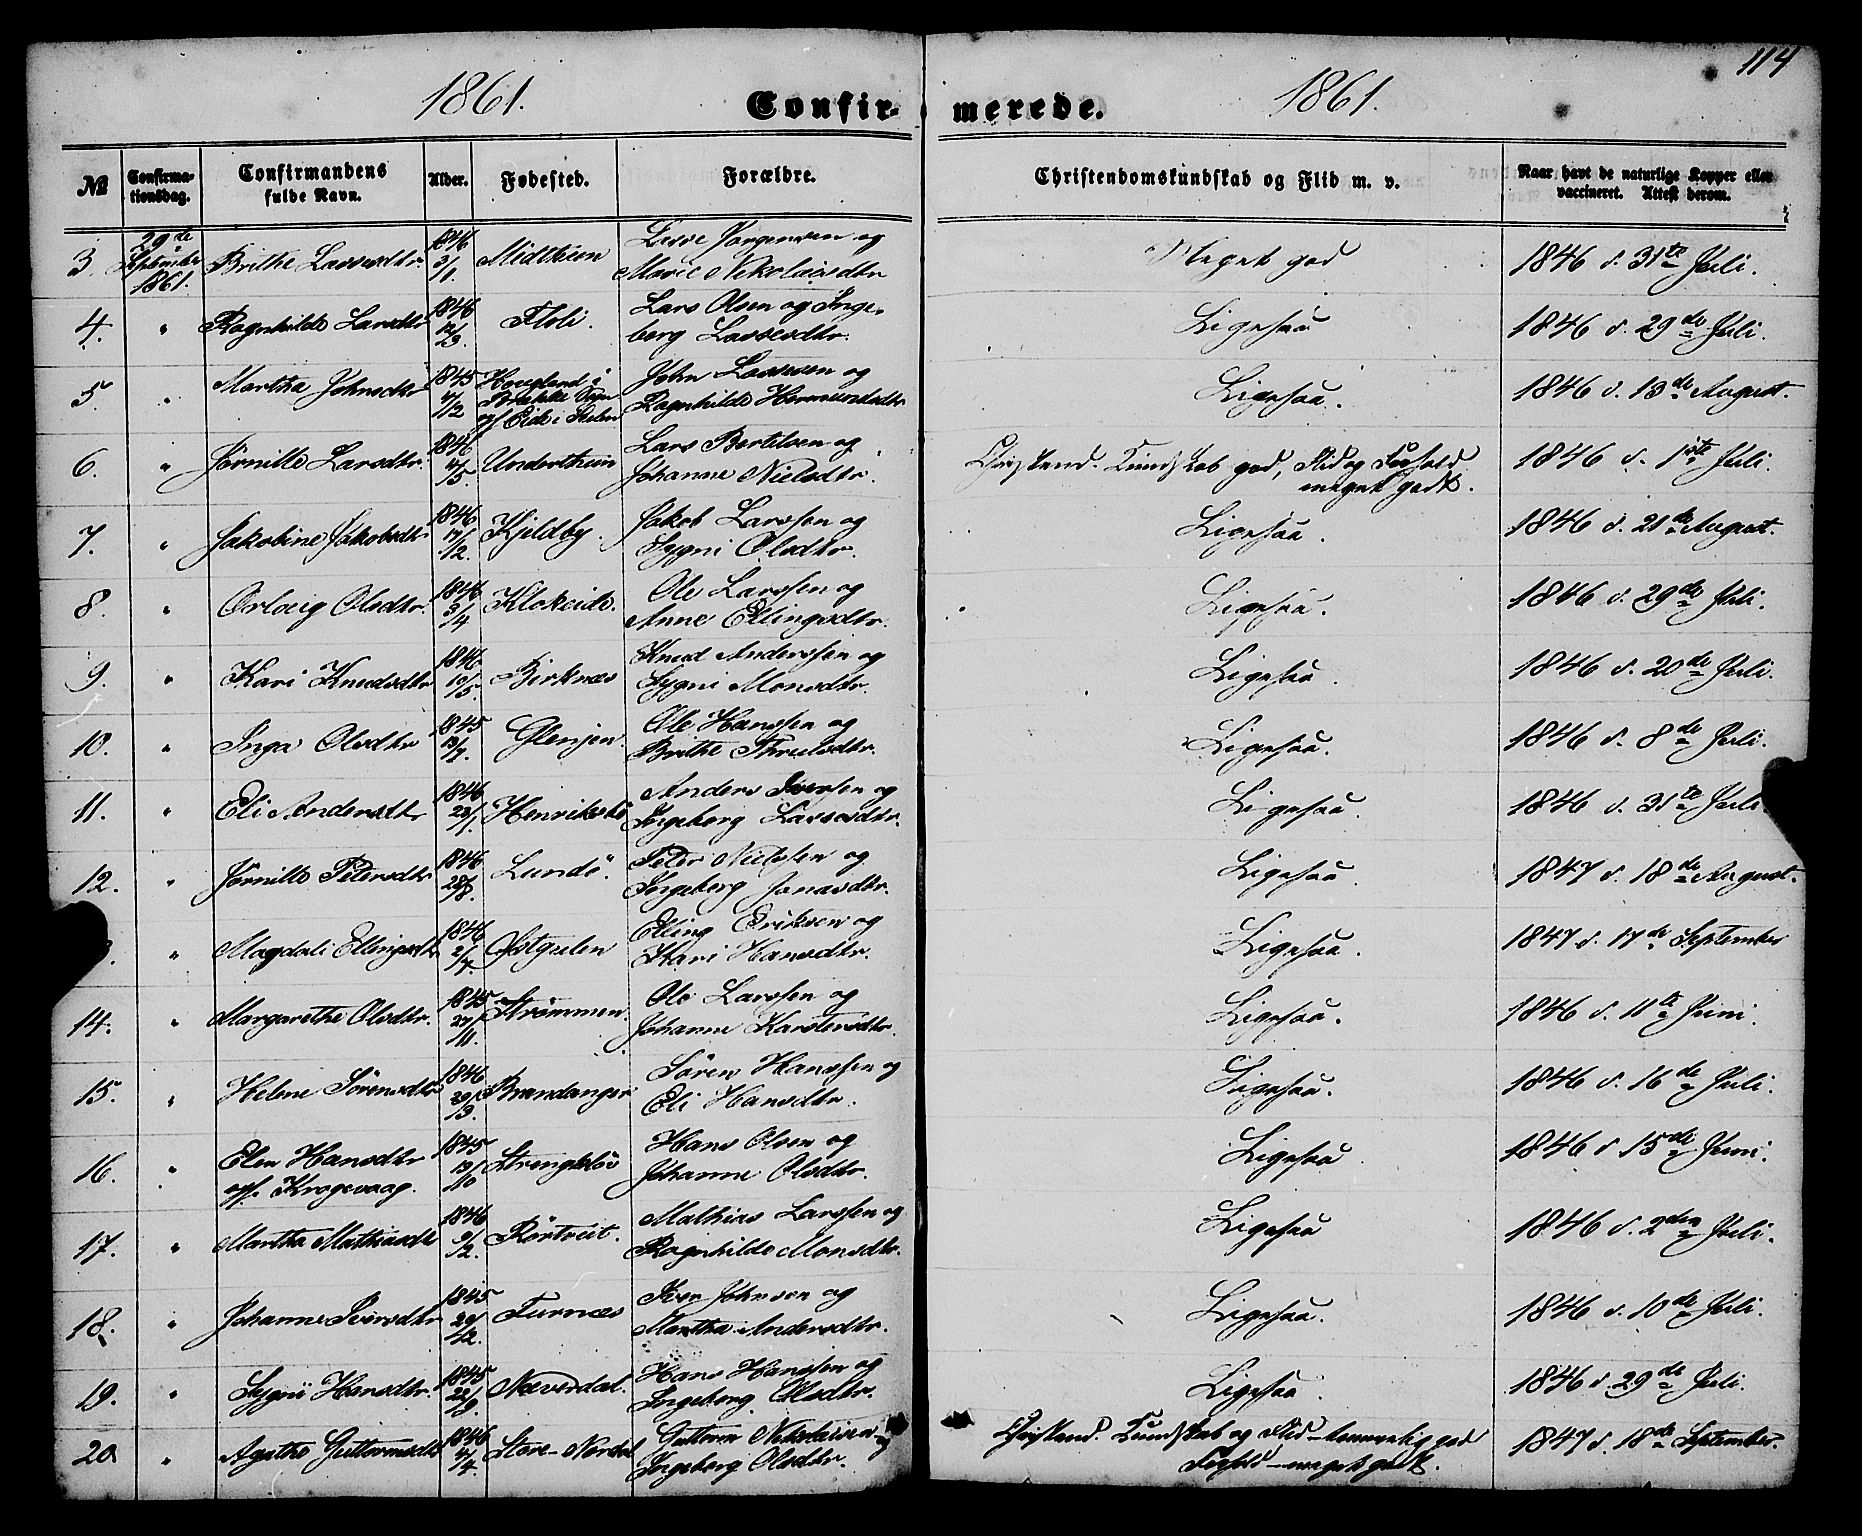 114
1861.
Confir-
merede.
1861.
№
Confirma-
tionsdag.
Confirmandens
fulde Navn.
Alder.
Fødested.
Forældre.
Christendomskundskab og Flid m. v.
Naar havt de naturlige Kopper eller
vaccineret. Attest derom.
3. 29de September 1861. Brithe Lassesdtr. 1846 3/1. Midthun Lasse Jørgensen og Marie Nikolaisdtr Meget god 1846 d. 31te Juli.
4. " Ragnhilde Larsdtr 1846 12/3. Floli. Lars Olsen og Inge- berg Lassesdtr. Ligesaa 1846 d. 29de Juli.
5. " Martha Johnsdtr 1845 4/12 Hougland i Brække Sogn opf Eide i John Lassesen og Ragnhilde Hermundsdtr Ligesaa. 1846 d. 13de August.
6. " Jørnille Larsdtr. 1846 4/5. Underthun Lars Bertilsen og Johanne Nielsdtr. Christend. Kundskab god, Flid og Forhold meget godt. 1846 d. 1ste Juli.
7. " Jakobine Jakobsdtr 1846 17/12. Kjeldby. Jakob Larssen og Sygni Olsdtr. Ligesaa. 1846 d. 21de August.
8. " Orloug Olsdtr. 1846 3/4 Klokeide. Ole Larssen og Anne Ellingsdtr. Ligesaa. 1846 d. 29de Juli.
9. " Kari Knudsdtr 1846 10/5. Birknæs Knud Anderssen og Sygni Monsdtr. Ligesaa. 1846 d. 20de Juli.
10. " Inga Olsdtr 1845 13/7. Glenjen. Ole Hanssen og Brithe Thruesdtr. Ligesaa. 1846 d. 8de Juli.
11. " Eli Andersdtr 1846 23/1. Henriksbø Anders Iversen og Ingeborg Lassesdtr. Ligesaa. 1846 d. 31te Juli
12. " Jørnille Petersdtr 1846 28/8. Lundø Peter Nielssen og Ingeborg Jonasdtr. Ligesaa. 1847 d. 18de August.
" Magdali Ellingsdtr 1846 2/7. Østgulen Elling Eriksen og Kari Hansdtr. Ligesaa. 1847 d. 17de September
14. " Margarethe Olsdtr. 1845 27/11. Strømmen. Ole Larssen og Johanne Karstensdtr. Ligesaa. 1846 d. 11te Juni.
15. " Helene Sörensdtr 1846 20/3. Brandanger Sören Hanssen og Eli Hansdtr. Ligesaa. 1846 d. 16de Juli.
16. " Elen Hansdtr opf. Krogevaag. 1845 13/10 Strengebø Hans Olsen og Johanne Olsdtr. Ligesaa 1846 d 15de Juni.
17. " Martha Mathiasdtr 1846 9/2. Rörtveit. Mathias Larssen og Ragnhilde Monsdtr. Ligesaa 1846 d. 2den Juli.
18. " Johanne Iversdtr 1845 20/12. Furnæs Iver Johnsen og Martha Andersdtr. Ligesaa. 1846 d. 10de Juli.
19. " Sygni Hansdtr. 1845 22/9. Næverdal. Hans Hanssen og Ingeborg Olsdtr. Ligesaa. 1846 d 29de Juli.
20 " Agathe Guttormsdtr 1846 4/4. Store-Nordal Guttorm Nikolaisen og Ingeborg Olsdtr. Christend. Kundskab og Flid – temmelig god Forhold – meget godt. 1847 d. 18de September.